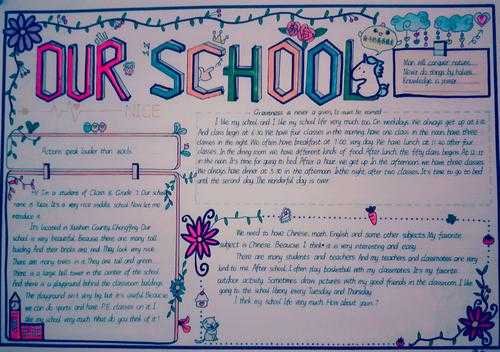 OUR SCHOOL
NICE
Man will conquer nature.
Never do things by halves.
Knowledge is power.
Actions speak louder than words.
Greatness is never a given, It must be earned
I like my school and I like my school life very much too. On weekdays. We always get up at 6:10.
And class begin at 6:30. We have four classes in the morning have one class in the noon. have three
classes in the night. We often have breakfast at 7:00 very day. We have lunch at 11:40 after four
classes. In the dining room we have different kinds of food. After lunch the fifth class begins. At 12:15
in the noon. It's time for going to bed. After a hour we get up. In the afternoon we have three classes.
We always have dinner at 5:10 in the afternoon. In the night, after two classes. It's time to go to bed
until the second day. The wonderful day is over.
I'm a student of Class 16 Grade 7. Our school
name is It's a very nice middle school. Now let me
introduce it.
It's located in County, Chongqing. Our
school is very beautiful. Because there are many tall
building. And their bricks are red. They look very nice.
There are many trees in it. They are tall and green.
There is a large bell tower in the center of the school.
And there is a playground behind the classroom buildings.
The playground isn't very big, but it's useful. Because
we can do sports and have P.E. classes on it. I
like my school very much. What do you think of it?
We need to have Chinese, math, English and some other subjects. My favorite
subject is Chinese. Because I think it is very interesting and easy.
There are many students and teachers. And my teachers and classmates are very
kind to me. After school, I often play basketball with my classmates. It's my favorite
outdoor activity. Sometimes draw pictures with my good friends in the classroom. I like
going to the school library every Tuesday and Thursday.
I think my school life very much. How about yours?